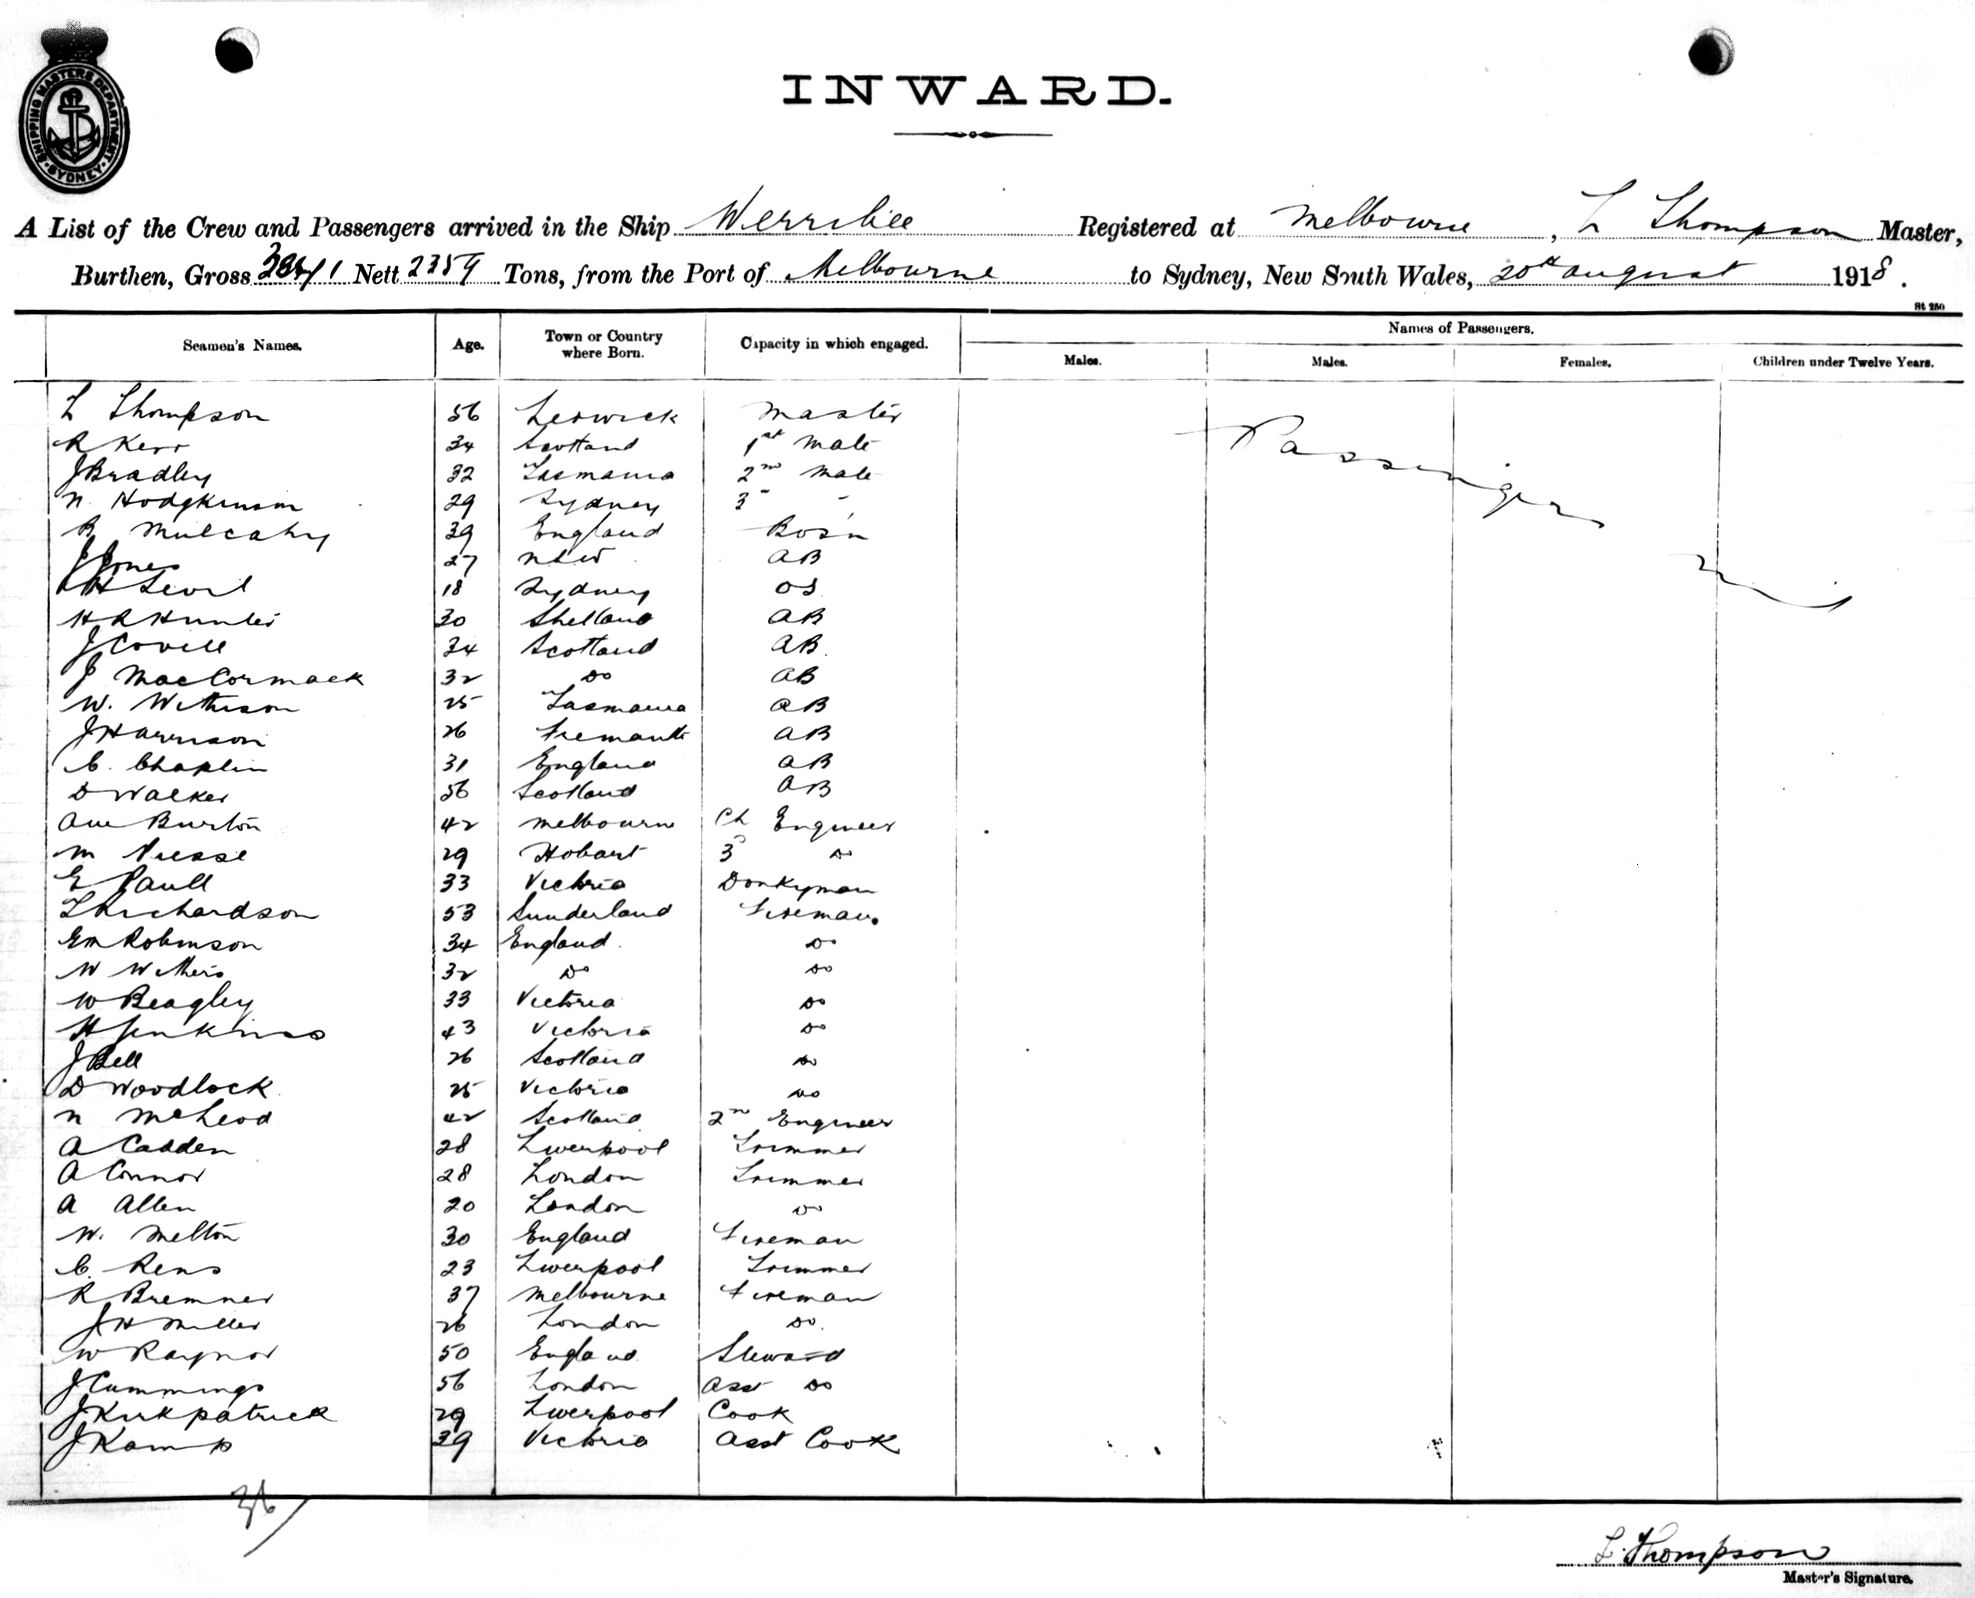 SHIPPING MASTERS DEPARTMENT · SYDNEY ·
INWARD.
A List of the Crew and Passengers arrived in the Ship Werribee Registered at Melbourne, L Thompson Master,
Burthen, Gross Nett 2359 Tons, from the Port of Melbourne to Sydney, New South Wales, 20th august 1918.
St 250
Seamen's Names. Age. Town or Country where Born. Capacity in which engaged. Names of Passengers.
Males. Males. Females. Children under Twelve Years.
L Thompson 56 Lerwick Master
R Kerr 34 Scotland 1st Mate
J Bradley 32 Tasmania 2nd Mate
N. Hodgkinson 29 Sydney 3 " "
B Mulcahy 39 England Bos'n
J Jones 27 NSW AB
H 18 Sydney OS
H R Hunter 30 Shetland AB
J Covell 34 Scotland AB
J MacCormack 32 Do AB
W. Witherson 25 Tasmania AB
J Harrison 26 Fremantle AB
C. Chaplin 31 England AB
D Walker 56 Scotland AB
Burton 42 Melbourne Ch Engineer
M 29 Hobart 3 Do
E Paull 33 Victoria Donkyman
L Richardson 53 Sunderland Fireman.
EM Robinson 34 England Do
W Withers 32 Do Do
W Beagley 33 Victoria Do
H Jenkins 43 Victoria Do
J Bell 26 Scotland Do
D Woodlock 25 Victoria Do
N McLeod 42 Scotland 2nd Engineer
A Cadden 28 Liverpool Trimmer
A Connor 28 London Trimmer
A Allen 20 London Do
W. Melton 30 England Fireman
C. Rens 23 Liverpool Trimmer
R Bremner 37 Melbourne Fireman
J H Miller 26 London Do.
W Raynor 50 England Steward
J Cummings 56 London Asst Do
J Kirkpatrick 29 Liverpool Cook
J Kamp 39 Victoria Asst Cook
Passengers Nil
36
L. Thompson
Master's Signature.